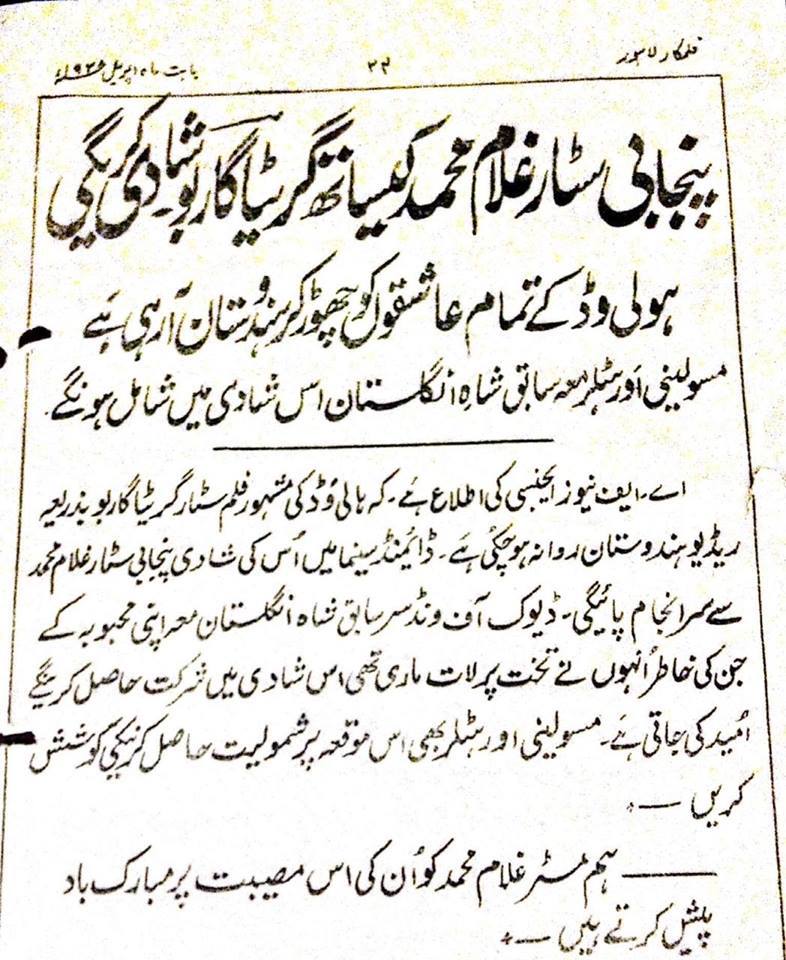 فلمکار لاہور
۳۴
بابت ماہ اپریل ۱۹۳۷ء
پنجابی سٹار غلام محمد کیساتھ گریٹا گاربو شادی کریگی
ہولی وڈ کے تمام عاشقوں کو چھوڑ کر ہندوستان آرہی ہے
مسولینی اور ہٹلر معہ سابق شاہِ انگلستان اس شادی میں شامل ہونگے۔
اے۔ ایف نیوز ایجنسی کی اطلاع ہے۔ کہ ہالی وُڈ کی مشہور فلم سٹار گریٹا گاربو بذریعہ
ریڈیو ہندوستان روانہ ہو چکی ہے۔ ڈائمنڈ سینما میں اُس کی شادی پنجابی سٹار غلام محمد
سے سرانجام پائیگی۔ ڈیوک آف ونڈسر سابق شاہ انگلستان معہ اپنی محبوبہ کے
جن کی خاطر اُنہوں نے تخت پر لات ماری تھی اس شادی میں شرکت حاصل کرینگے
اُمید کی جاتی ہے۔ مسولینی اور ہٹلر بھی اس موقعہ پر شمولیت حاصل کرنیکی کوشش
کریں —۔
—— ہم مسٹر غلام محمد کو اُن کی اس مصیبت پر مبارک باد
پیش کرتے ہیں —۔